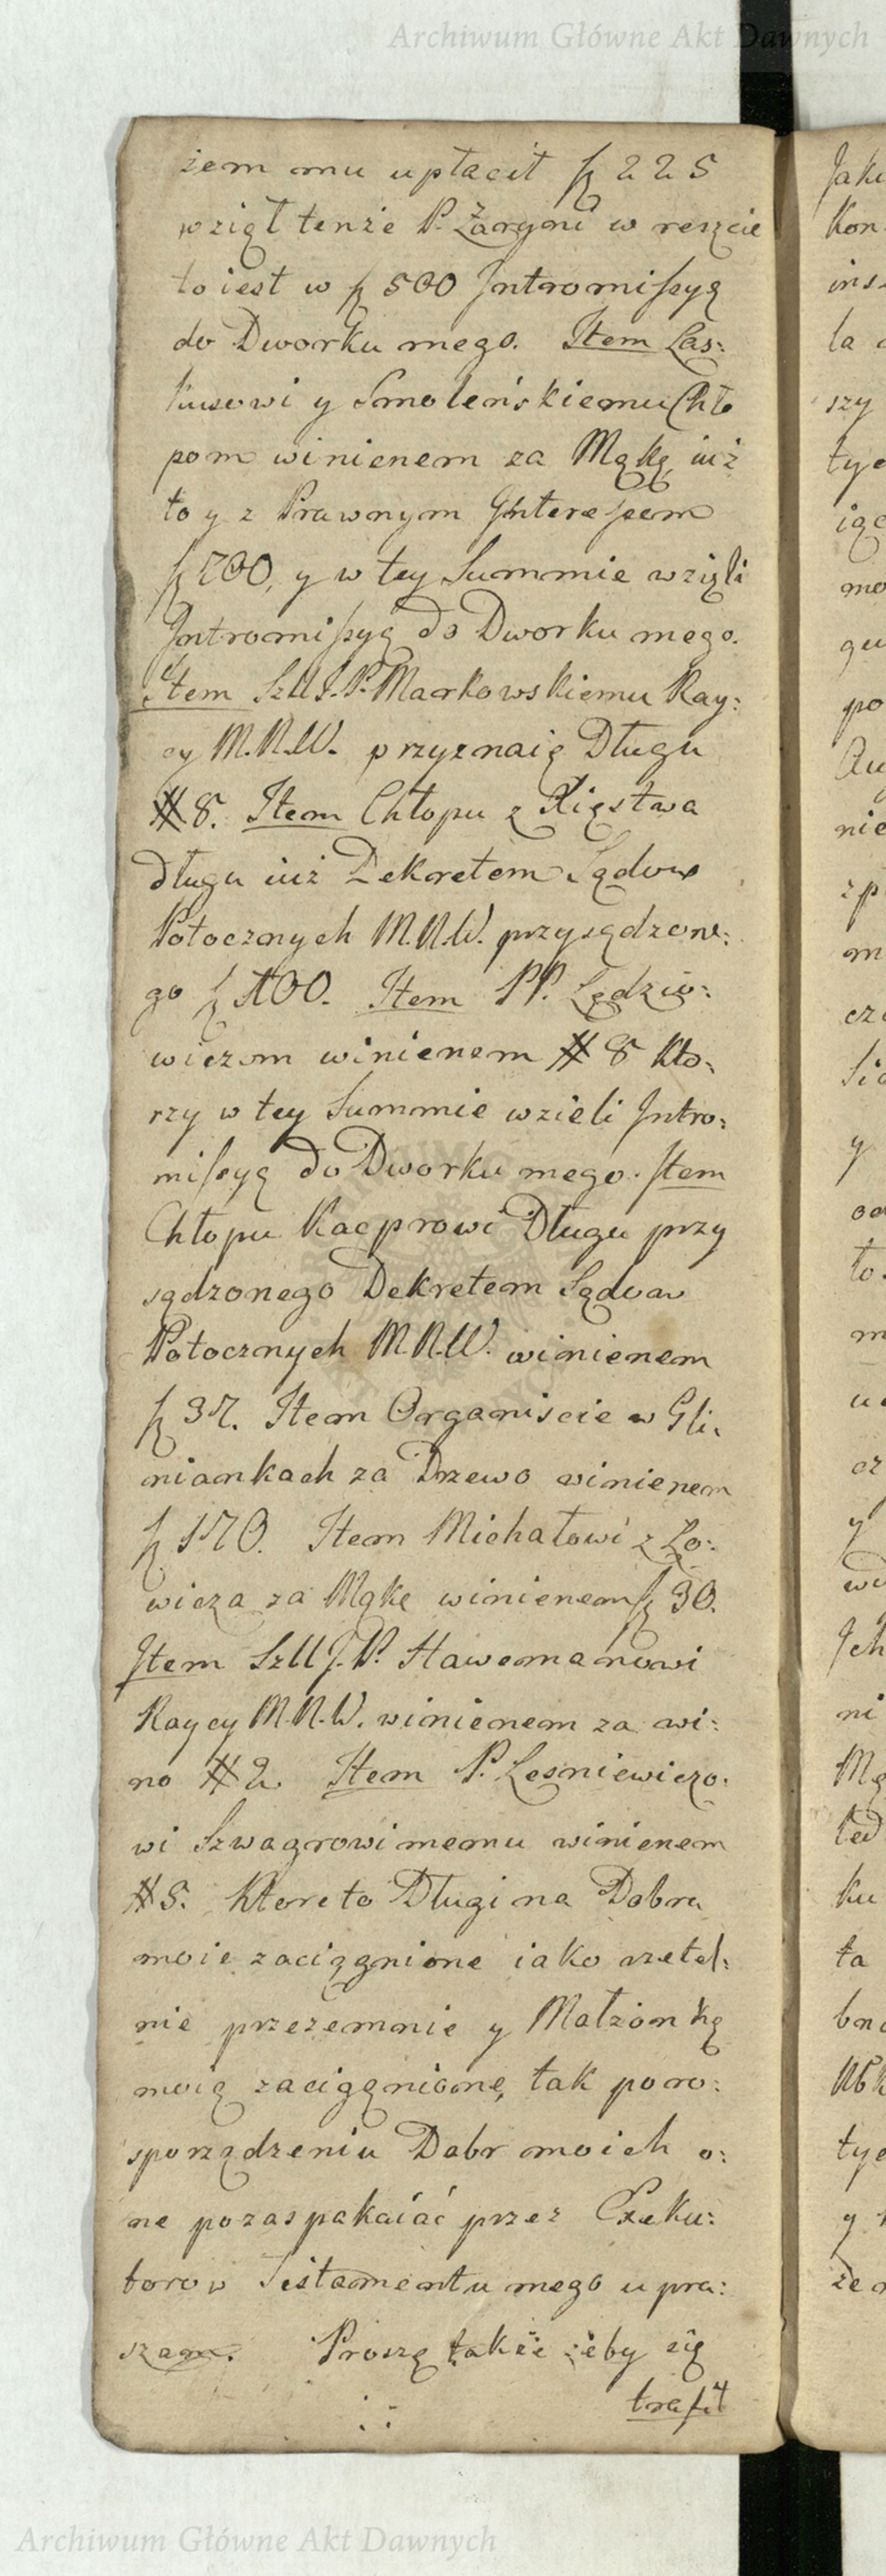 Archiwum Główne Akt Dawnych
żem mu upłacił fl 225
wziął tenże P. Zargoni w reszcie
to iest w fl 500 Jntromissyą
do Dworku mego. Item Las:
kusowi y Smoleńskiemu Chło
pom winienem za Mąkę iuż
to y z Prawnym Jnteressem
fl 700, y w tey Summie wzięli
Jntromissyą do Dworku mego.
Item SzllJ.P. Markowskiemu Ray:
cy M.N.W. przyznaię Długu
# 8. Item Chłopu z Xięstwa
długu iuż Dekretem Sądow
Potocznych M.N.W. przysądzone:
go fl 100. Item PP. Lędzio:
wiczom winienem # 8 kto:
rzy w tey Summie wzieli Jntro:
missyą do Dworku mego. Jtem
Chłopu Kacprowi Długu przy
sądzonego Dekretem Sądow
Potocznych M.N.W. winienem
fl 37. Item Organiscie w Gli:
niankach za Drzewo winienem
fl 170. Item Michałowi z Ło:
wicza za Mąkę winienem fl 30.
Jtem SzllJ.P. Hawemanowi
Raycy M.N.W. winienem za wi:
no # 2. Item P. Lesniewiczo:
wi Szwagrowi memu winienem
# 5. Ktore to Długi na Dobra
moie zaciągnione iako rzetel:
nie przezemnie y Małżonkę
moię zaciągnione, tak po ro:
sporządzeniu Dobr moich o:
ne pozaspakaiać przez Exeku:
torow Testamentu mego upra:
szam. Proszę także żeby się
trafił
Jaki
Kon
ins
la
szy
tyc
mo
gu
po
Au
nie
zp
m
cze
y
od
to.
m
cz
y
Jch
ni
ku
ta
tye
y
że
Archiwum Główne Akt Dawnych